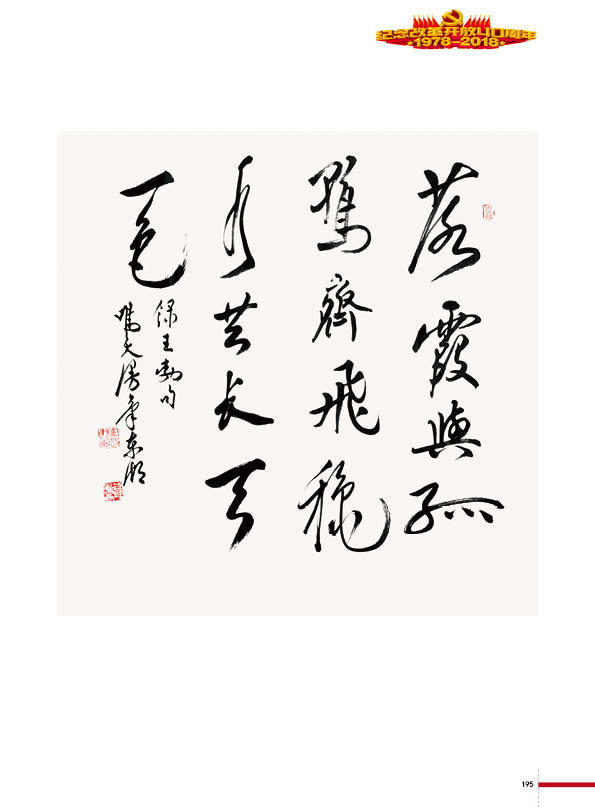 纪念改革开放40周年
1978-2018
落霞與孤
鶩齊飛穐
水共長天
一色
録王勃句
東湖
195